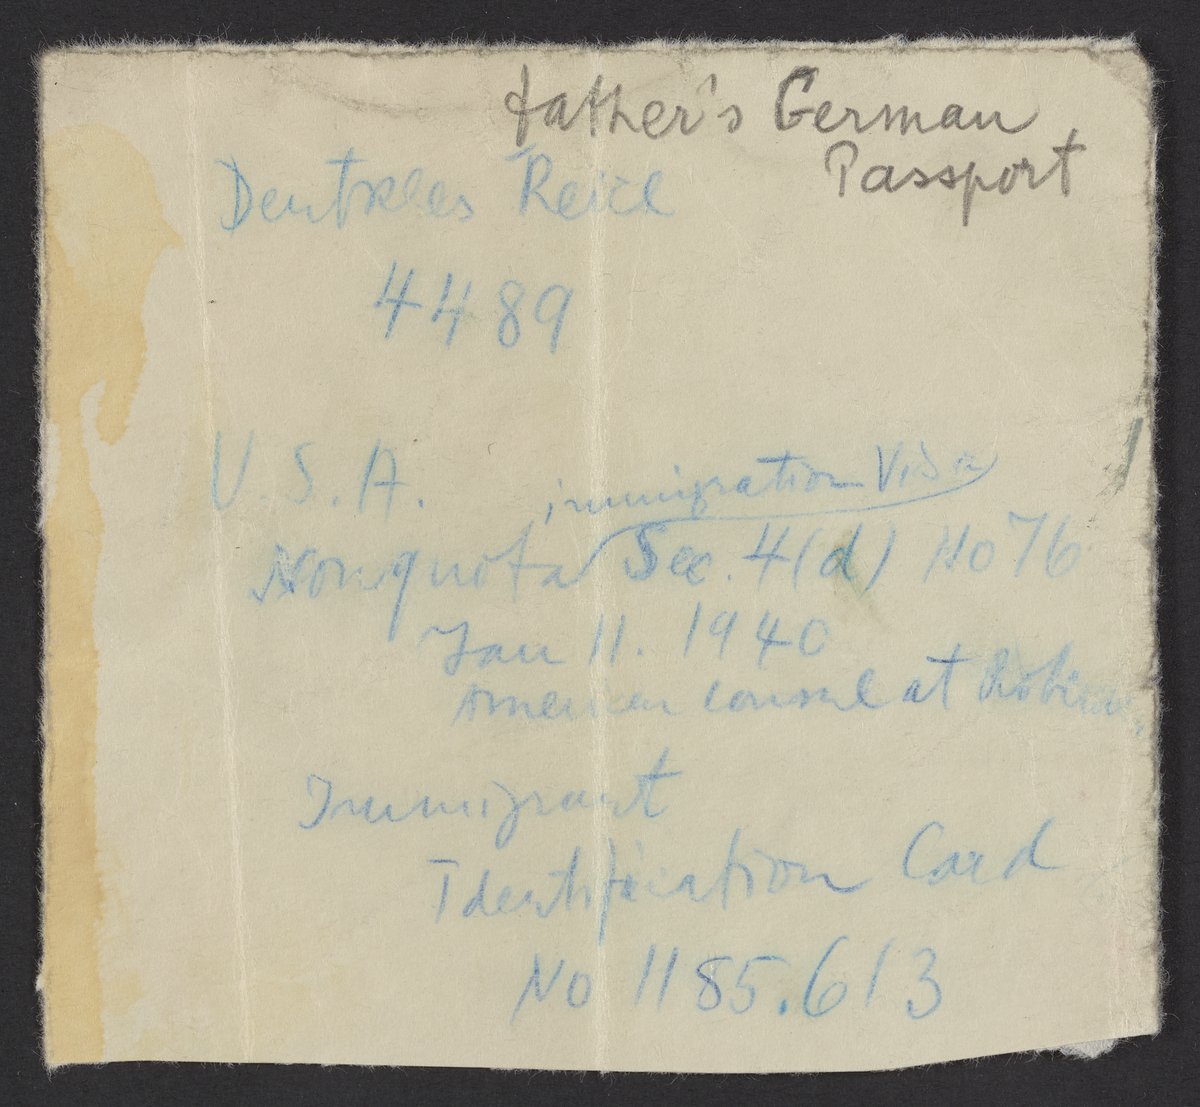 father's German
Passport
Deutsches Reich
4489
U.S.A. immigration Visa
Nonquota Sec. 4(d) No 76
Jan 11. 1940
American consul at
Immigrant
Identification Card
No 1185.613